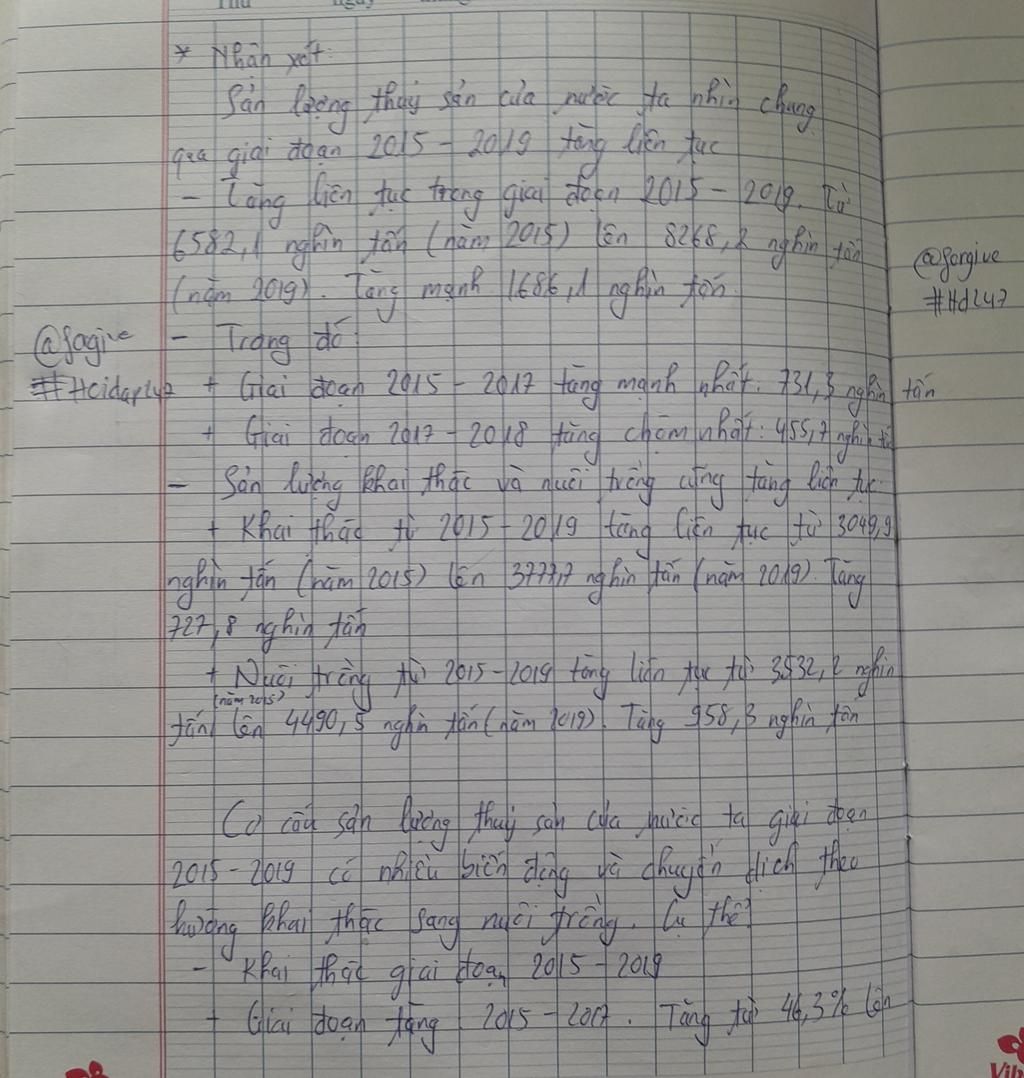 Thứ ngày
* Nhận xét:
Sản lượng thủy sản của nước ta nhìn chung
qua giai đoạn 2015 - 2019 tăng liên tục
- Tăng liên tục trong giai đoạn 2015 - 2019. Từ
6582,1 nghìn tấn (năm 2015) lên 8268,2 nghìn tấn
(năm 2019). Tăng mạnh 1686,1 nghìn tấn.
@forgive
#Hd247
- Trong đó
@fagive
+ Giai đoạn 2015 - 2017 tăng mạnh nhất: 731,3 nghìn tấn
+ Giai đoạn 2017 - 2018 tăng chậm nhất: 455,7 nghìn tấn
- Sản lượng khai thác và nuôi trồng cũng tăng liên tục.
+ Khai thác từ 2015 - 2019 tăng liên tục từ 3049,9
nghìn tấn (năm 2015) lên 3777,7 nghìn tấn (năm 2019). Tăng
727,8 nghìn tấn
+ Nuôi trồng từ 2015 - 2019 tăng liên tục từ 3532,2 nghìn
(năm 2015)
tấn lên 4490,5 nghìn tấn (năm 2019). Tăng 958,3 nghìn tấn
Cơ cấu sản lượng thuỷ sản của nước ta giai đoạn
2015 - 2019 có nhiều biến động và chuyển dịch theo
hướng khai thác sang nuôi trồng. Cụ thể:
- Khai thác giai đoạn 2015 - 2019
+ Giai đoạn tăng: 2015 - 2017. Tăng từ 46,3% lên